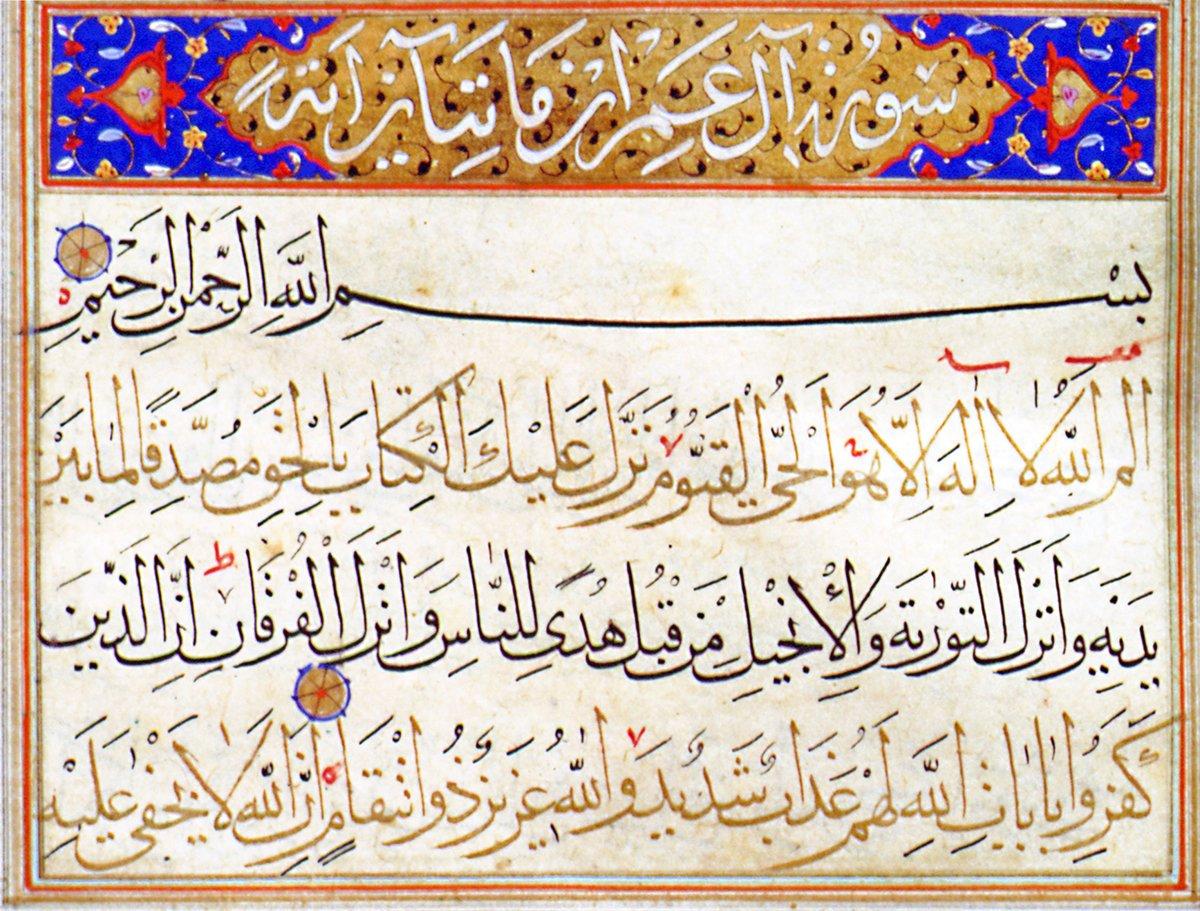 سُورَةُ آلِ عِمْرَانَ مَائَتَا آيَةٍ
بِسْمِ اللّٰهِ الرَّحْمٰنِ الرَّحِيمِ
الم اللّٰهُ لَا اِلٰهَ اِلَّا هُوَ الْحَىُّ الْقَيُّومُ نَزَّلَ عَلَيْكَ الْكِتَابَ بِالْحَقِّ مُصَدِّقًا لِمَا بَيْنَ
يَدَيْهِ وَاَنْزَلَ التَّوْرٰيةَ وَالْاِنْجِيلَ مِنْ قَبْلُ هُدًى لِلنَّاسِ وَاَنْزَلَ الْفُرْقَانَ اِنَّ الَّذِينَ
كَفَرُوا بِاٰيَاتِ اللّٰهِ لَهُمْ عَذَابٌ شَدِيدٌ وَاللّٰهُ عَزِيزٌ ذُو انْتِقَامٍ اِنَّ اللّٰهَ لَا يَخْفٰى عَلَيْهِ